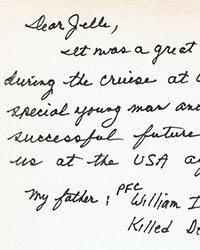 Dear Jelle,
It was a great
during the cruise at
special young man and
successful future
us at the USA ag
My father : PFC William I
Killed De